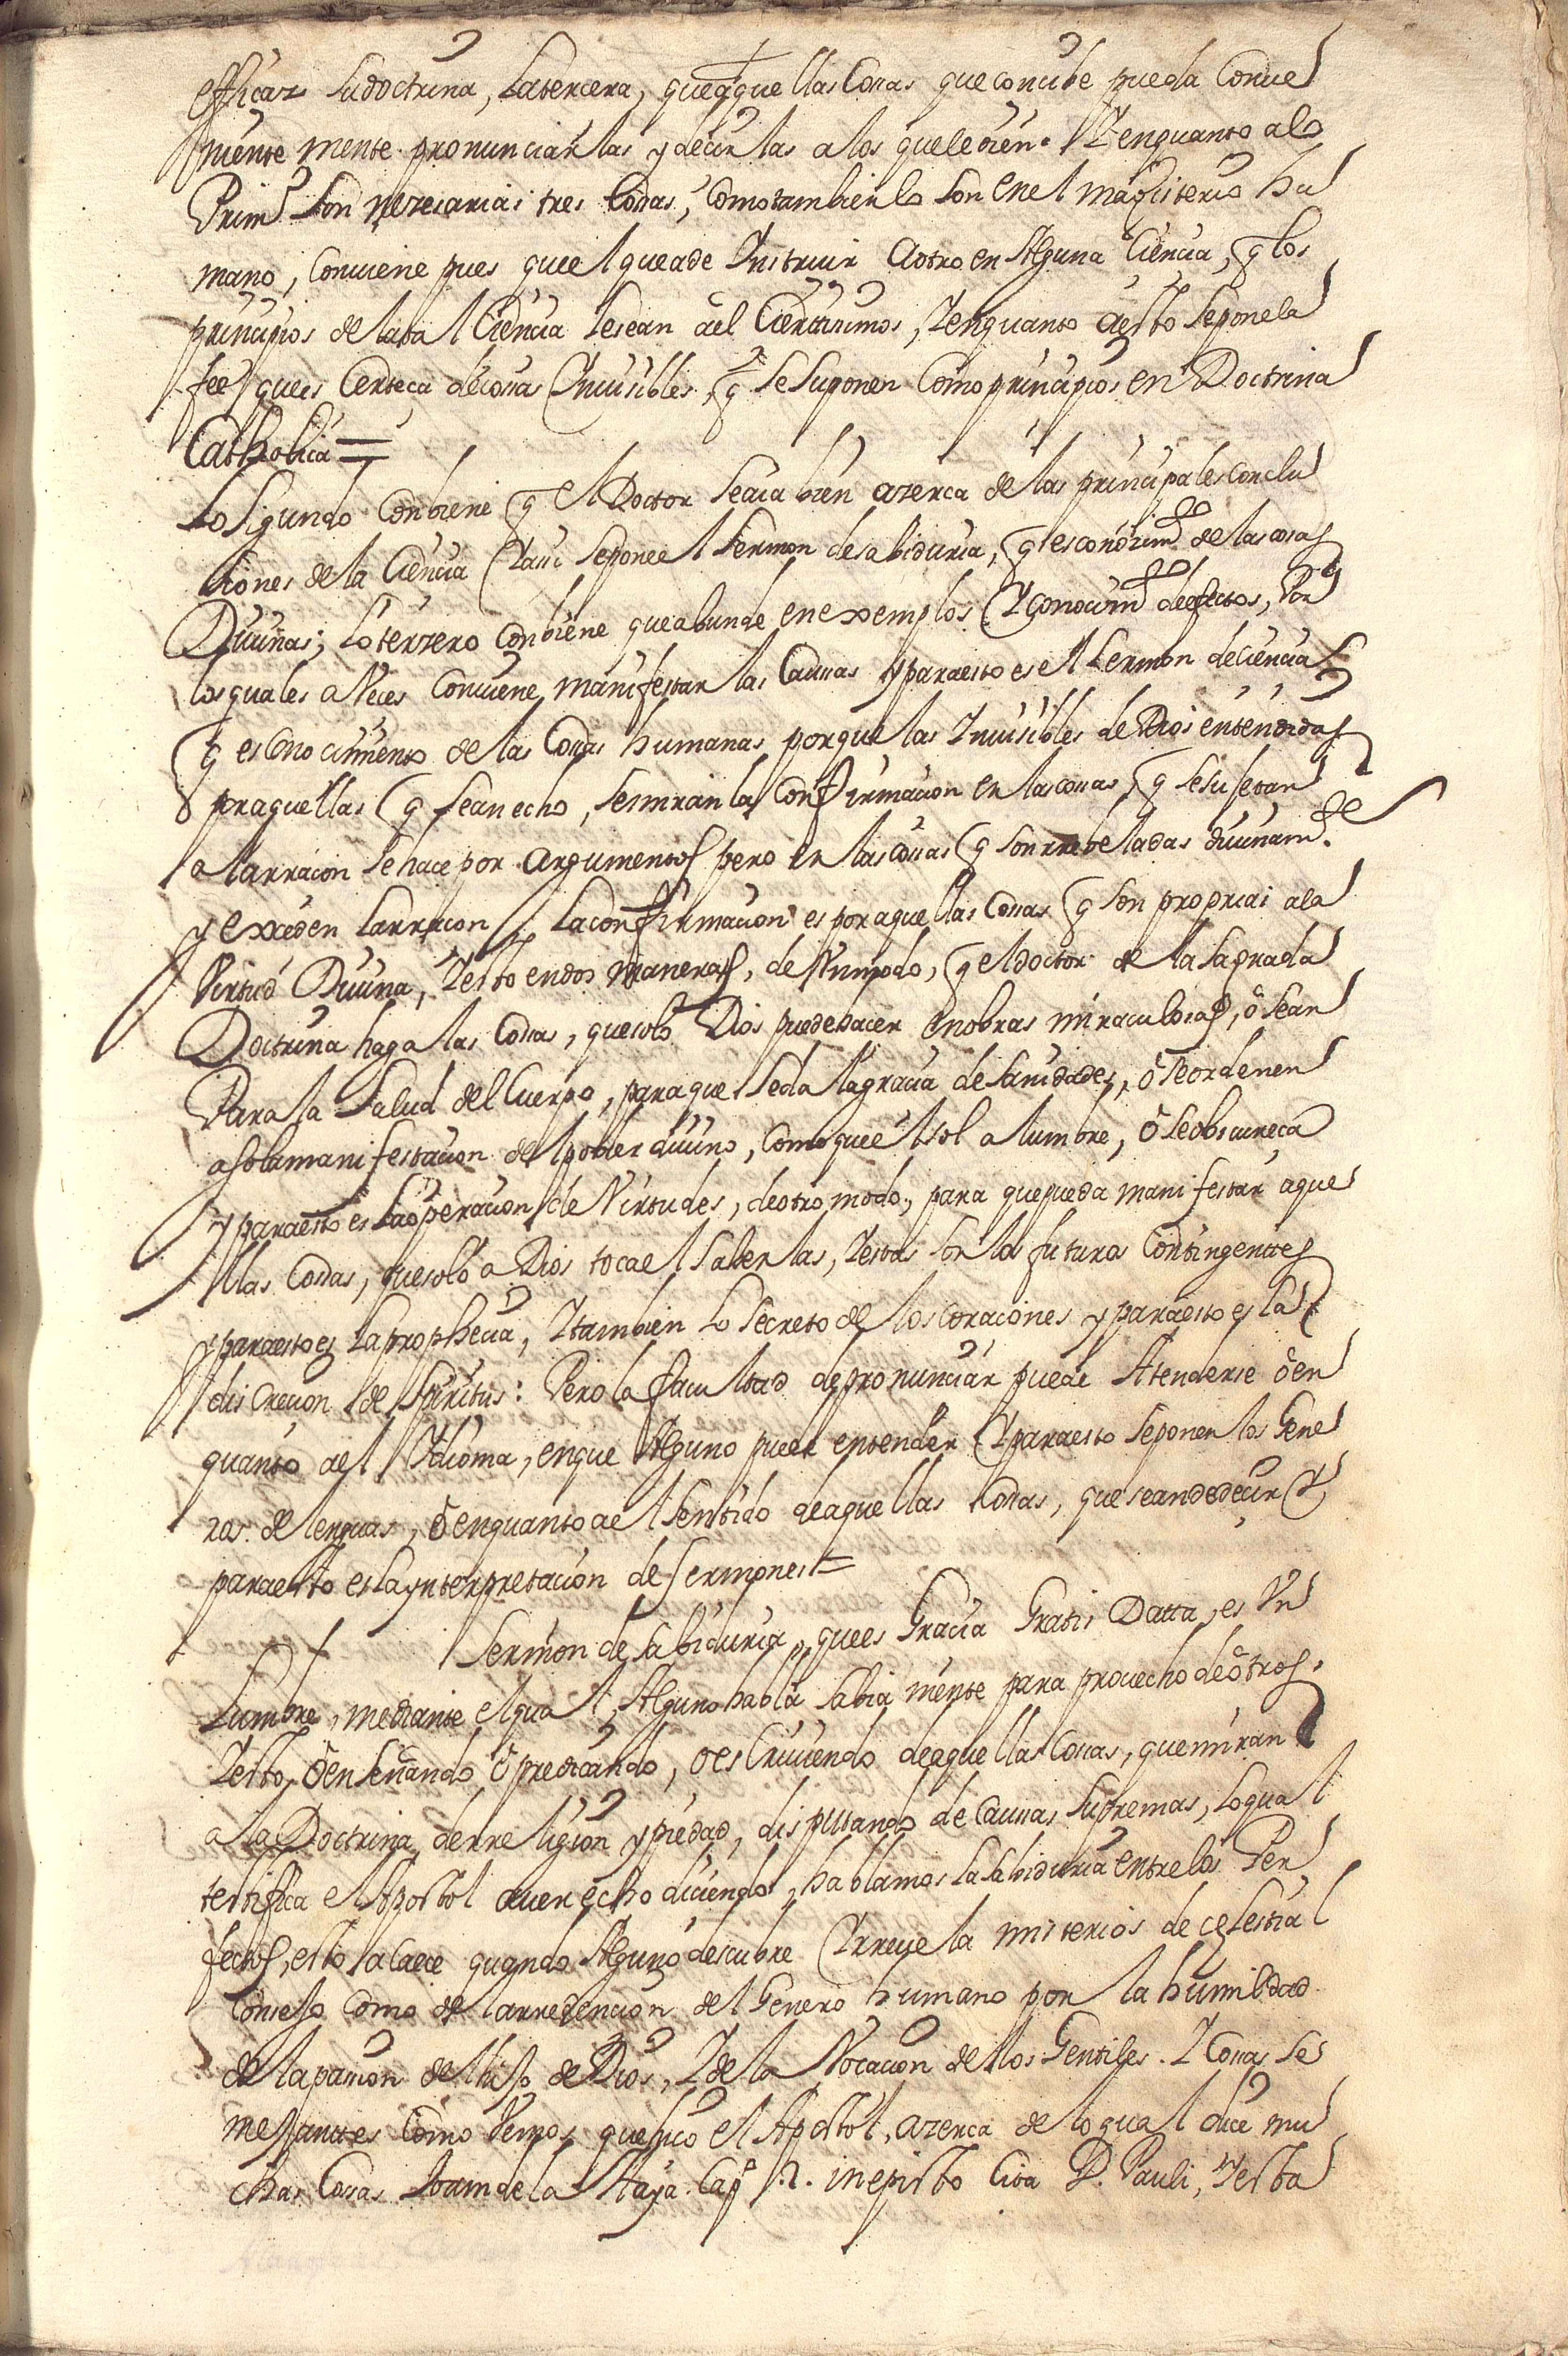 efficaz su doctrina, La tercera, que aquellas Cosas que conciue pueda Conue
niente mente pronunciarlas y decirlas a los que le oien. Y en quanto a lo
Prim.º son nezesarias tres Cosas, como tambien lo son en el magisterio hu
mano, Conuiene pues que el que a de Ynstruir a otro en Alguna Ciencia, q los
principios de la tal Ciencia le sean a el Ciertisimos, Y en quanto a esto se pone la
fee, que es Certeça de cosas Ynuisibles, q se suponen Como principios en Doctrina
Catholica =
Lo Sigundo Conbiene q el Doctor se aia bien azerca de las principales Conclu
siones de la Ciencia Y asi se pone el Sermon de sabiduria, q es conozim.to de las cosas
Diuinas; Lo terzero Conbiene que abunde en exemplos Y conocim.to de efectos, Por
los quales a Veces Conuiene manifestar las Causas y para esto es el Sermon de Ciencia
q es Conocimiento de las Cosas humanas porque las Ynuisibles de Dios entendidas
por aquellas q se an echo, se miran la Confirmacion en las cosas q se sujetan
a la rracion se hace por argumentos pero en las cosas q son rrebeladas diuinam.te
y exceden la rracon, la confirmacion es por aquellas Cosas q son propias a la
Virtud Diuina, Y esto en dos maneras, de Vn modo, q el doctor de la Sagrada
Doctrina haga las Cosas, que solo Dios puede hacer en obras miraculosas, o sean
Para la Salud del Cuerpo, para que se da la gracia de sanidades, o se ordenen
a sola manifestacion del poder diuino, como que el sol alumbre, o se obscureca
y para esto es la operacion de Virtudes, de otro modo, para que pueda manifestar aque
llas Cosas, que solo a Dios toca el saberlas, Y estas son las futuras Contingentes
y para esto es la prophecia, Y tambien lo secreto de los coraciones y para esto es la
discrecion de Spiritus: Pero la facultad de pronunciar puede Atenderse o en
quanto a el Ydioma, en que Alguno puede entender Y para esto se ponen los Gene
ros de lenguas, o en quanto a el sentido de aquellas Cosas, que se an de decir Y
para esto es la ynterpretacion de sermones =
Sermon de sabiduria, que es Gracia Gratis Datta, es Vn
Lumbre, mediante el qual Alguno habla sabia mente para prouecho de otros,
Y esto, o enseñando, o predicando, o escriuiendo de aquellas Cosas, que miran
a la Doctrina de rreligion y piedad, disputando de Causas Supremas, lo qual
testifica el Apostol auer echo diciendo, hablamos la sabiduria entre los Per
fectos, esto acaece quando Alguno descubre Y rreuela misterios de celestial
Consejo como de la rredencion del Genero humano por la humildad
de la pasion del hijo de Dios, Y de la Vocacion de los Gentiles. Y Cosas se
mejantes como Vemos que hiço el Apostol, azerca de lo qual dice mu
chas Cosas Juan de la Haya. Cap.º 2. in episto Cita D. Pauli, Y esta